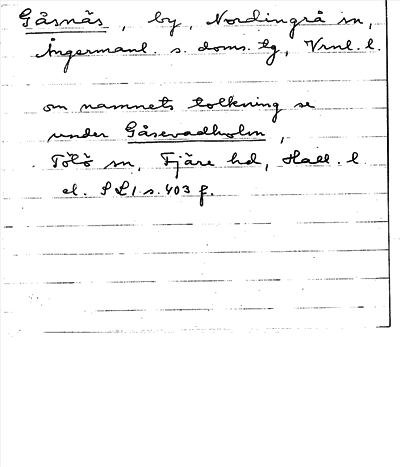 Gåsnäs, by, Nordingrå sn,
Ångermanl. s. doms. tg, Vrnl. l.
om namnets tolkning se
under Gåsevadholm,
Tölö sn, Fjäre hd, Hall. l
el. SL1 s. 403 f.